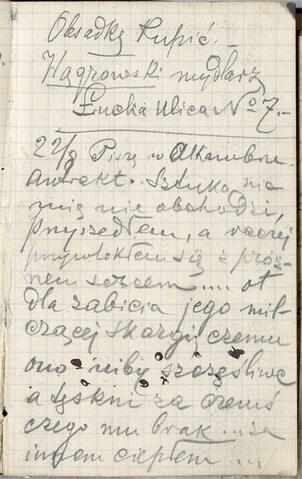 Obsadkę kupić. —
Wągrowski mydlarz
Łucka Ulica No 7. —
22/8 Piszę w Alhambrze.
Antrakt. Sztuka nic
mię nie obchodzi,
przyszedłem, a raczej
przywlokłem się z próż-
nem sercem.... ot
dla zabicia jego mil-
czącej skargi czemu
ono niby szczęśliwe
a tęskni za czemś
czego mu brak... za
innem ciepłem....